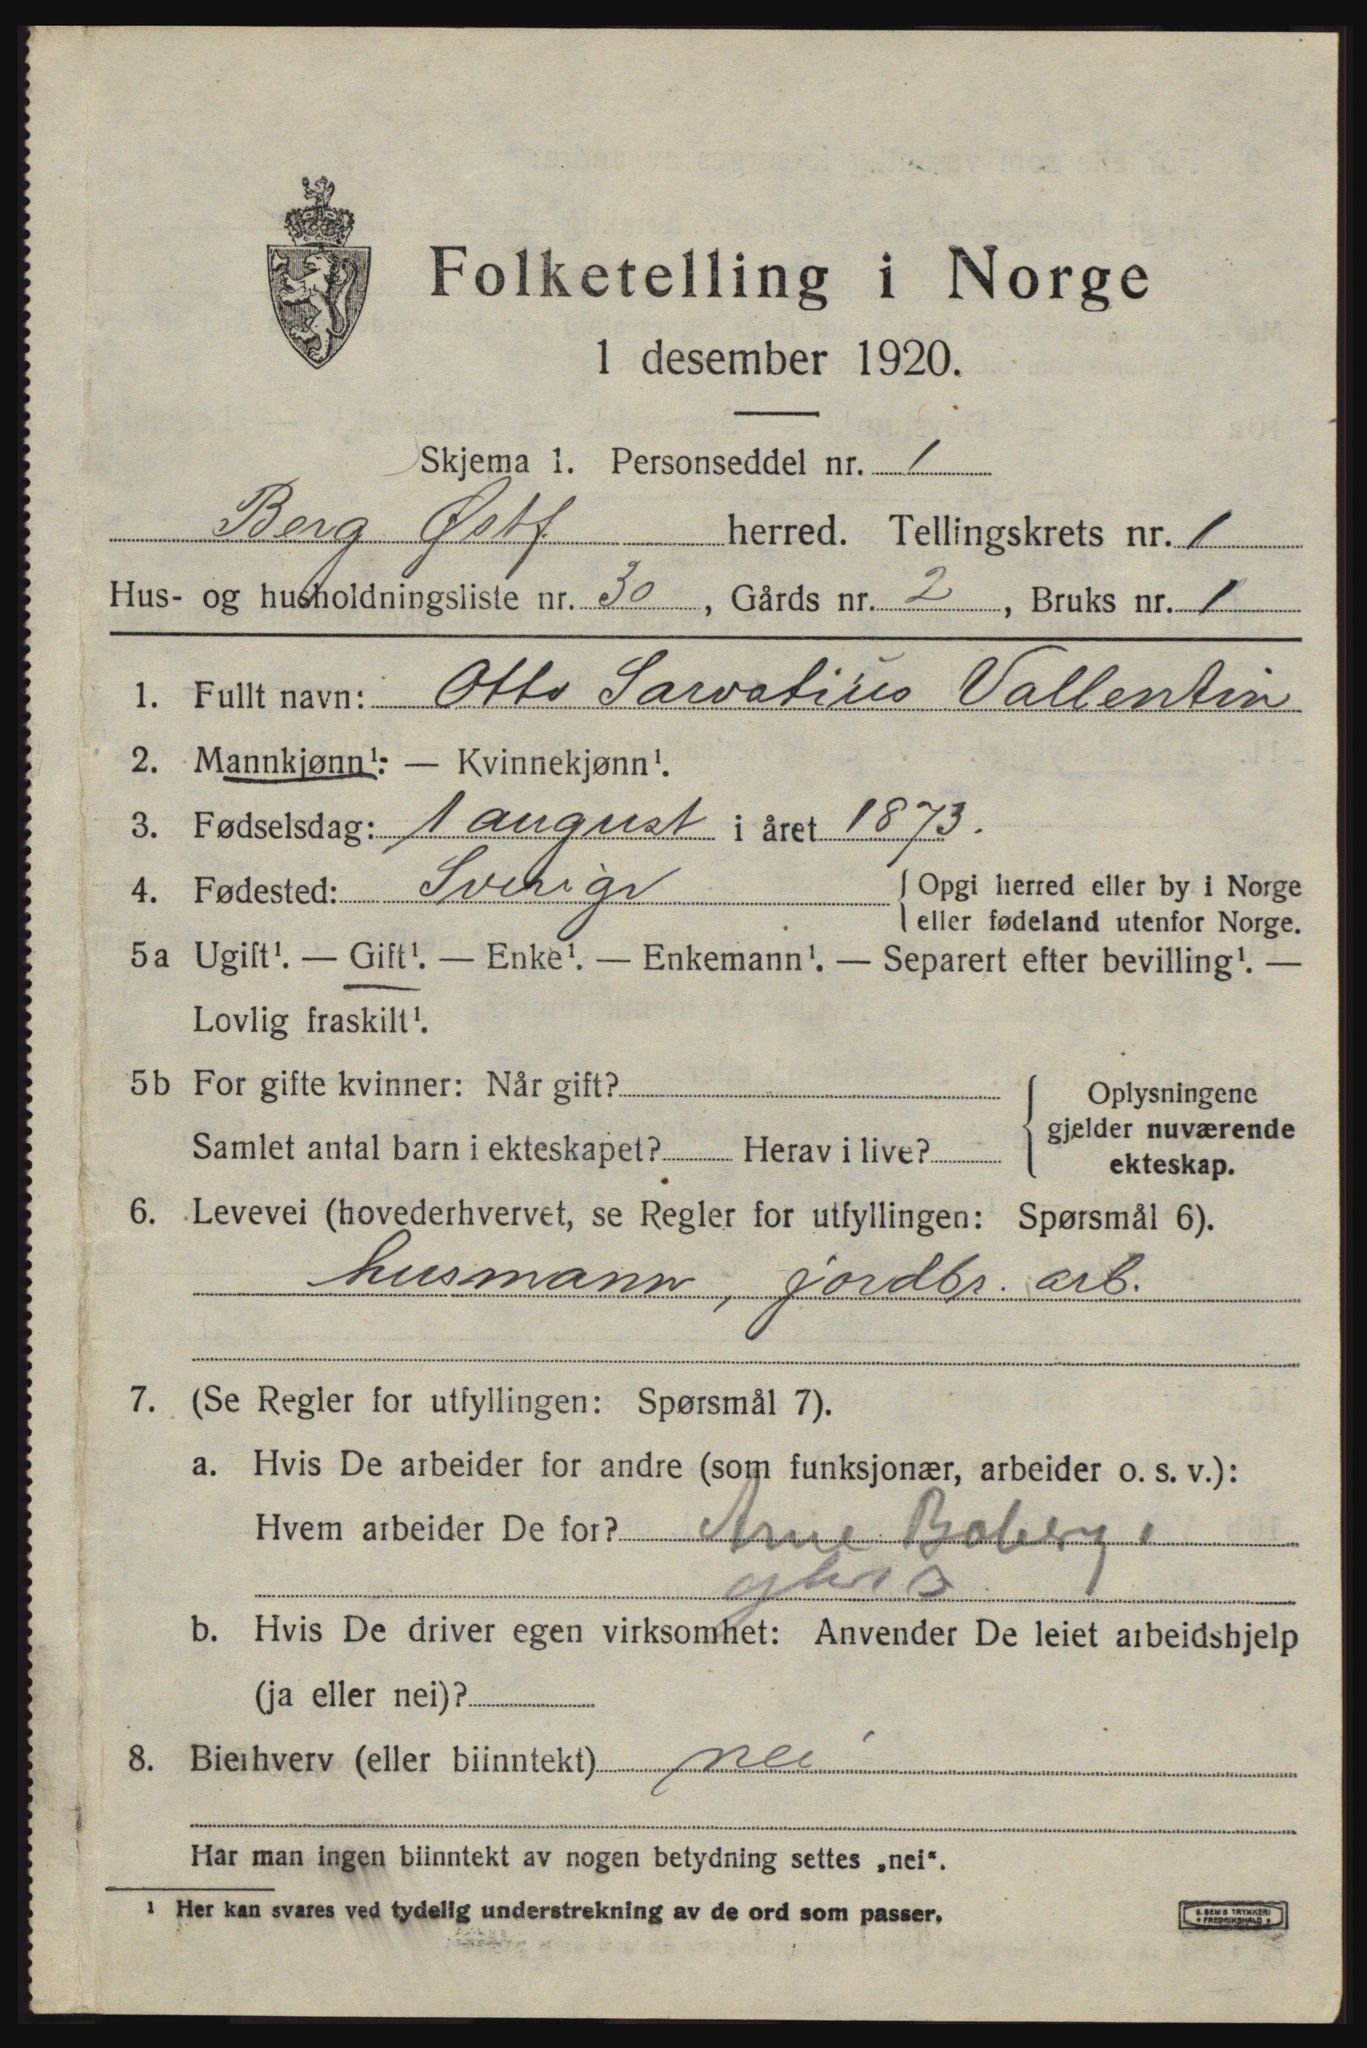 Folketelling i Norge
1 desember 1920.
Skjema 1. Personseddel nr. 1
Berg Østf. herred. Tellingskrets nr. 1
Hus- og husholdningsliste nr. 30, Gårds nr. 2, Bruks nr. 1
1. Fullt navn: Otto Sarvatius Vallentin
2. Mannkjønn¹: — Kvinnekjønn¹.
3. Fødselsdag: 1 august i året 1873.
4. Fødested: Sverige { Opgi herred eller by i Norge
eller fødeland utenfor Norge.
5a Ugift¹. — Gift¹. — Enke¹. — Enkemann¹. — Separert efter bevilling¹. —
Lovlig fraskilt¹.
5b For gifte kvinner: Når gift? { Oplysningene
gjelder nuværende
Samlet antal barn i ekteskapet? Herav i live? ekteskap.
6. Levevei (hovederhvervet, se Regler for utfyllingen: Spørsmål 6).
husmann, jordbr. arb.
7. (Se Regler for utfyllingen: Spørsmål 7).
a. Hvis De arbeider for andre (som funksjonær, arbeider o. s. v.):
Hvem arbeider De for? Arne Boberg
b. Hvis De driver egen virksomhet: Anvender De leiet arbeidshjelp
(ja eller nei)?
8. Bierhverv (eller biinntekt) nei
Har man ingen biinntekt av nogen betydning settes „nei“.
¹ Her kan svares ved tydelig understrekning av de ord som passer.
E. SEM'S TRYKKERI
FREDRIKSHALD